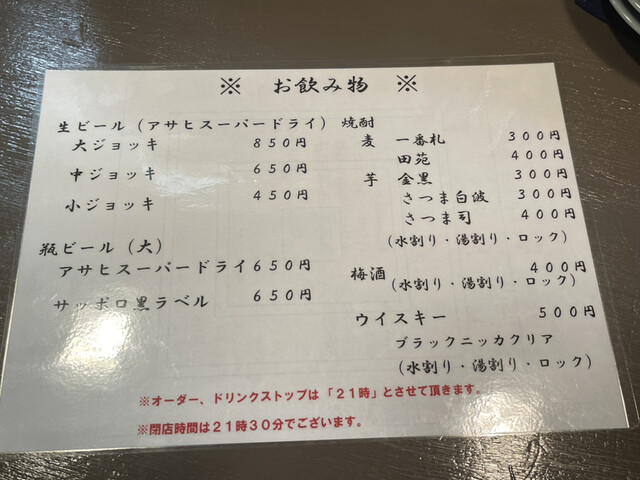 ※ お飲み物 ※
生ビール（アサヒスーパードライ）
大ジョッキ 850円
中ジョッキ 650円
小ジョッキ 450円
瓶ビール（大）
アサヒスーパードライ 650円
サッポロ黒ラベル 650円
焼酎
麦 一番札 300円
田苑 400円
芋 金黒 300円
さつま白波 300円
さつま司 400円
（水割り・湯割り・ロック）
梅酒 400円
（水割り・湯割り・ロック）
ウイスキー 500円
ブラックニッカクリア
（水割り・湯割り・ロック）
※オーダー、ドリンクストップは「21時」とさせて頂きます。
※閉店時間は21時30分でございます。